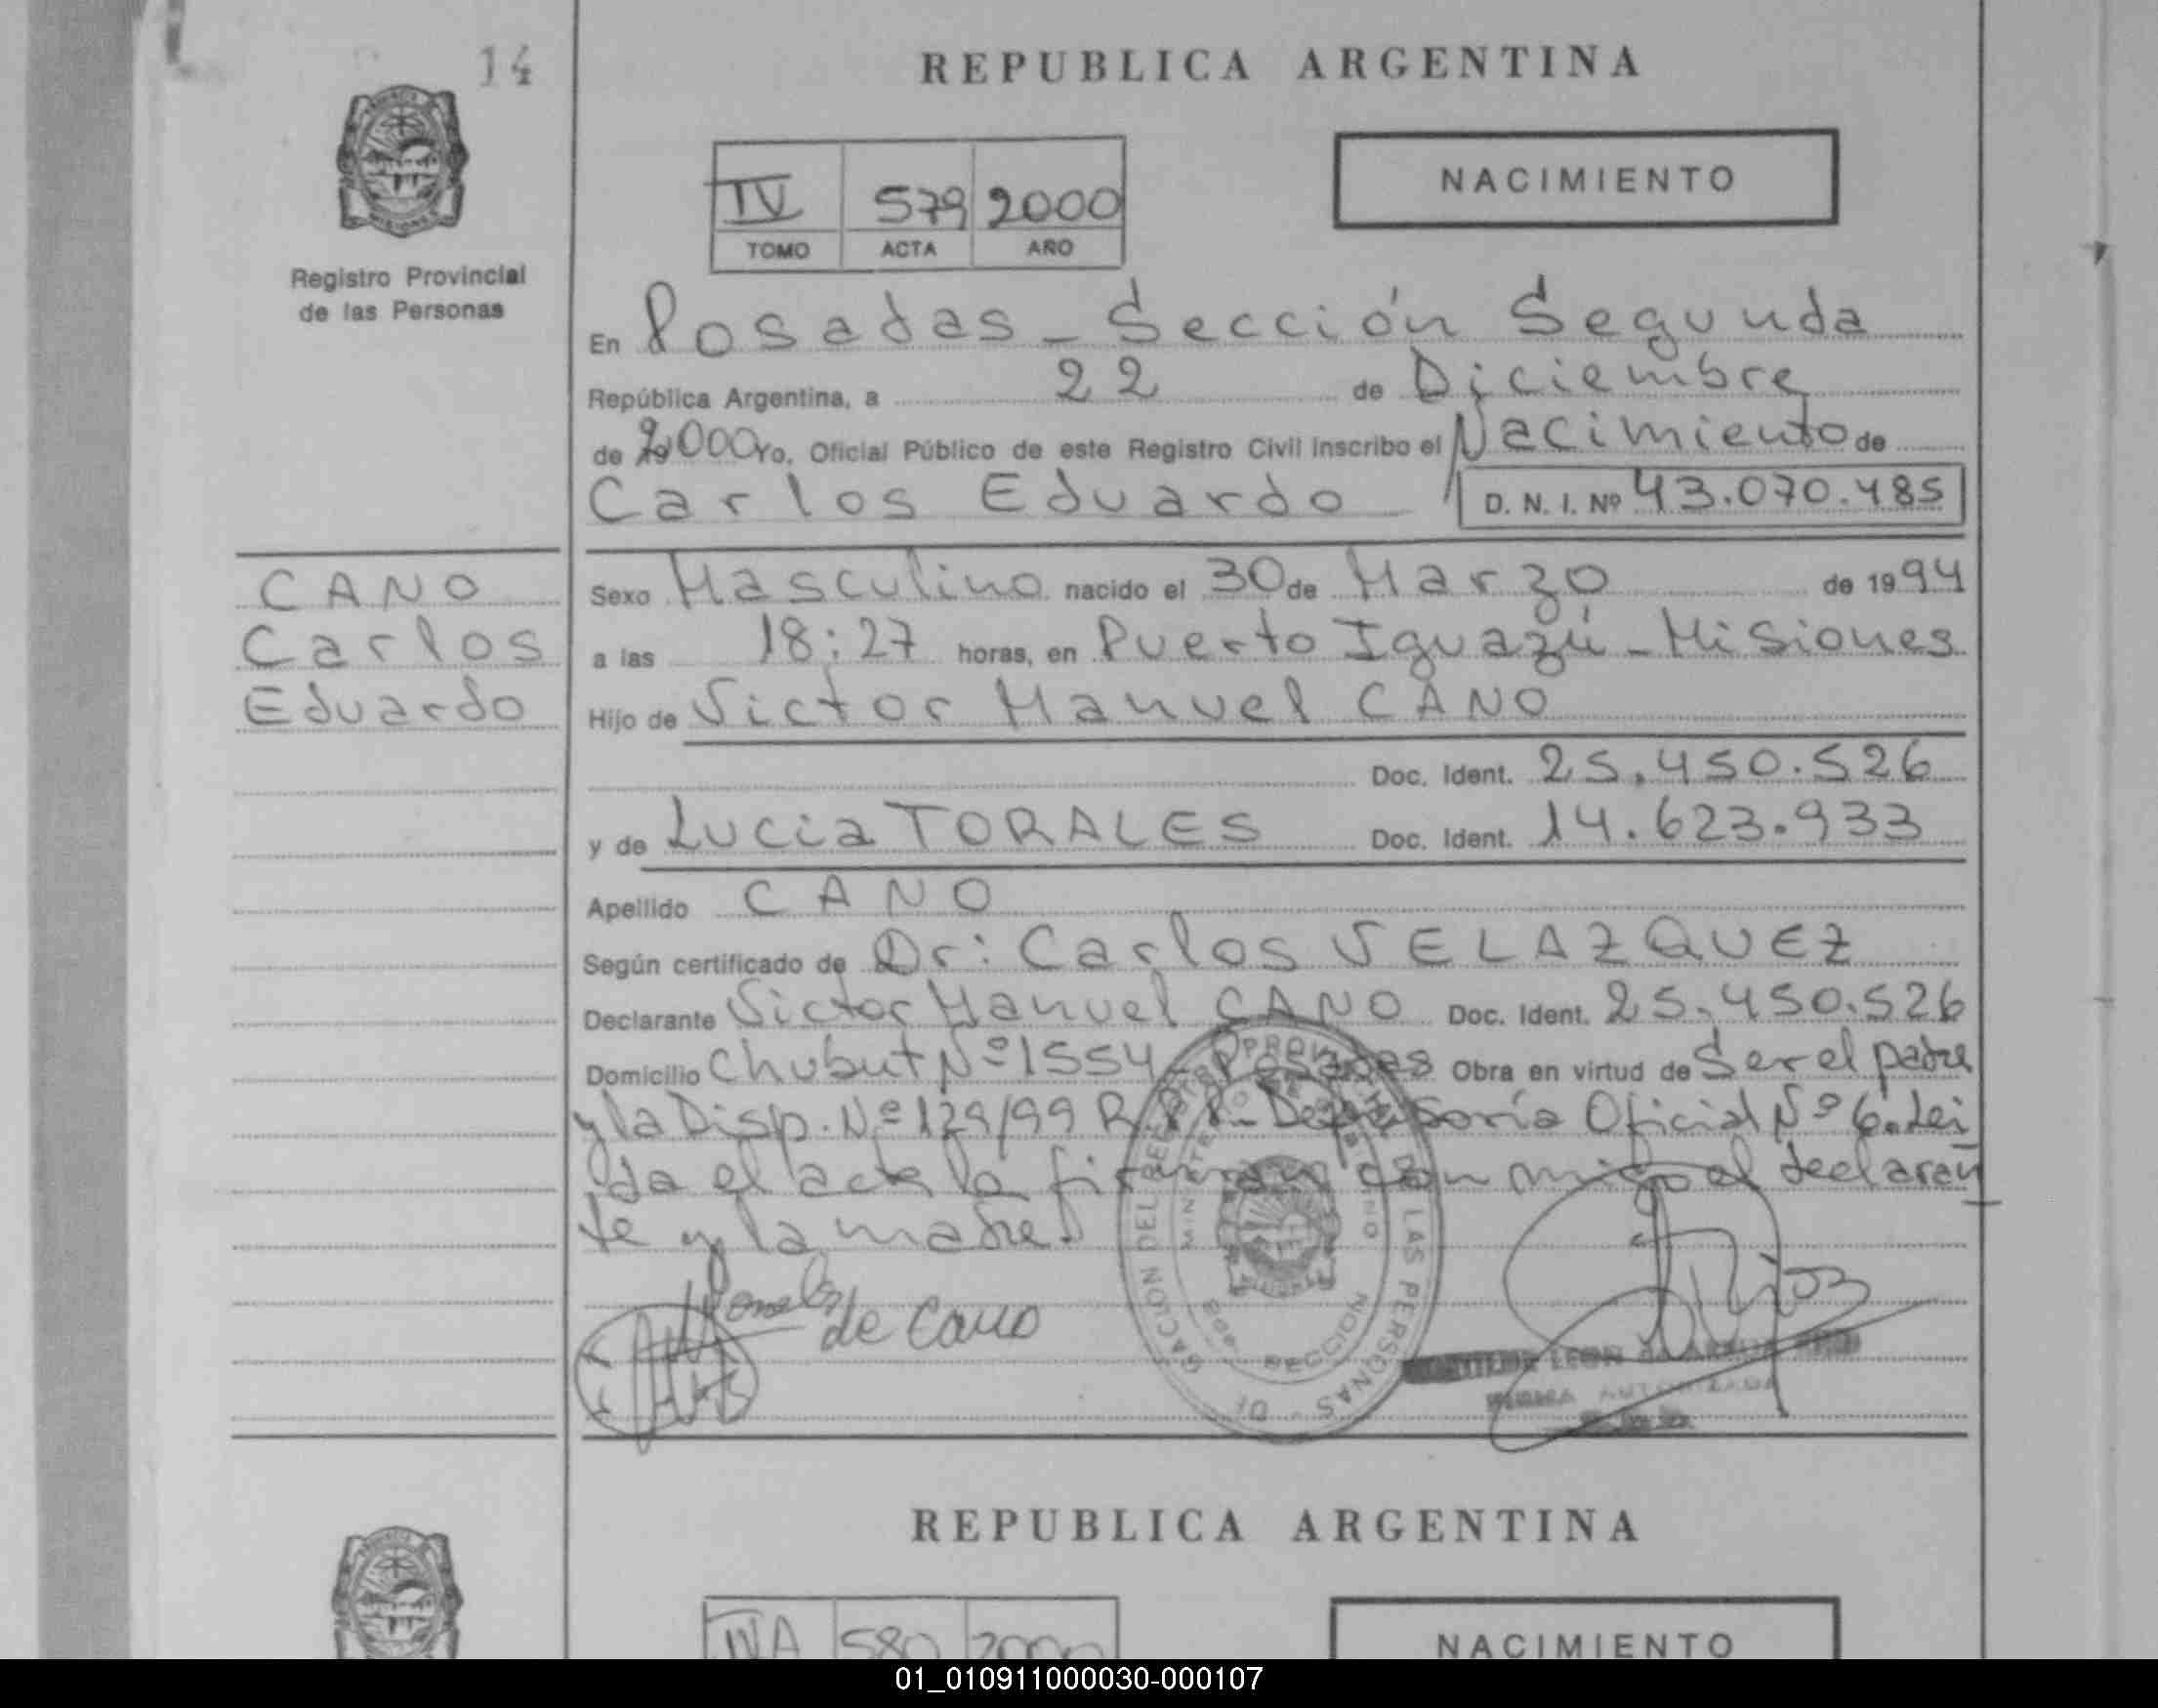 14
REPUBLICA ARGENTINA
NACIMIENTO
IV 579 2000
TOMO ACTA AÑO
Registro Provincial
de las Personas
En Posadas - Sección Segunda
República Argentina, a 22 de Diciembre
de 2000 Yo, Oficial Público de este Registro Civil inscribo el Nacimiento de
Carlos Eduardo D. N. I. Nº 43.070.485
CANO
Carlos
Eduardo
Sexo Masculino nacido el 30 de Marzo de 1994
a las 18:27 horas, en Puerto Iguazú - Misiones
Hijo de Victor Manuel CANO
Doc. Ident. 25.450.526
y de Lucia TORALES Doc. Ident. 14.623.933
Apellido CANO
Según certificado de Dr: Carlos VELAZQUEZ
Declarante Victor Manuel CANO Doc. Ident. 25.450.526
Domicilio Chubut Nº 1554 - Posadas Obra en virtud de Ser el padre
y la Disp. Nº 129/99 R.P.P. - Defensoría Oficial Nº 6. Lei
da el acta la firman con migo el declaran
te y la madre.
de Cano
LAS PERSONAS
REPUBLICA ARGENTINA
IVA 580 2000
NACIMIENTO
01_010911000030-000107